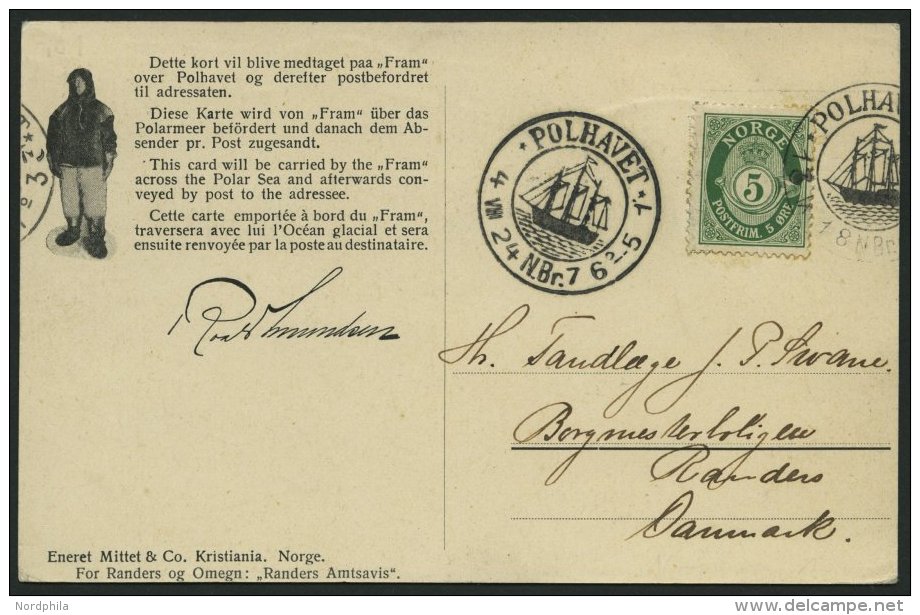 Dette kort vil blive medtaget paa „Fram“
over Polhavet og derefter postbefordret
til adressaten.
Diese Karte wird von „Fram“ über das
Polarmeer befördert und danach dem Ab-
sender pr. Post zugesandt.
This card will be carried by the „Fram“
across the Polar Sea and afterwards con-
veyed by post to the adressee.
Cette carte emportée à bord du „Fram“,
traversera avec lui l'Océan glacial et sera
ensuite renvoyée par la poste au destinataire.
Roald Amundsen
POLHAVET
4 VIII 24 N.Br. 7
NORGE
5
POSTFRIM. 5 ØRE
POLHA
Hr. Tandlæge J. P. Swane.
Borgmesterboligen
Randers
Danmark.
Eneret Mittet & Co. Kristiania. Norge.
For Randers og Omegn: „Randers Amtsavis“.
Nordphila
delcampe.net